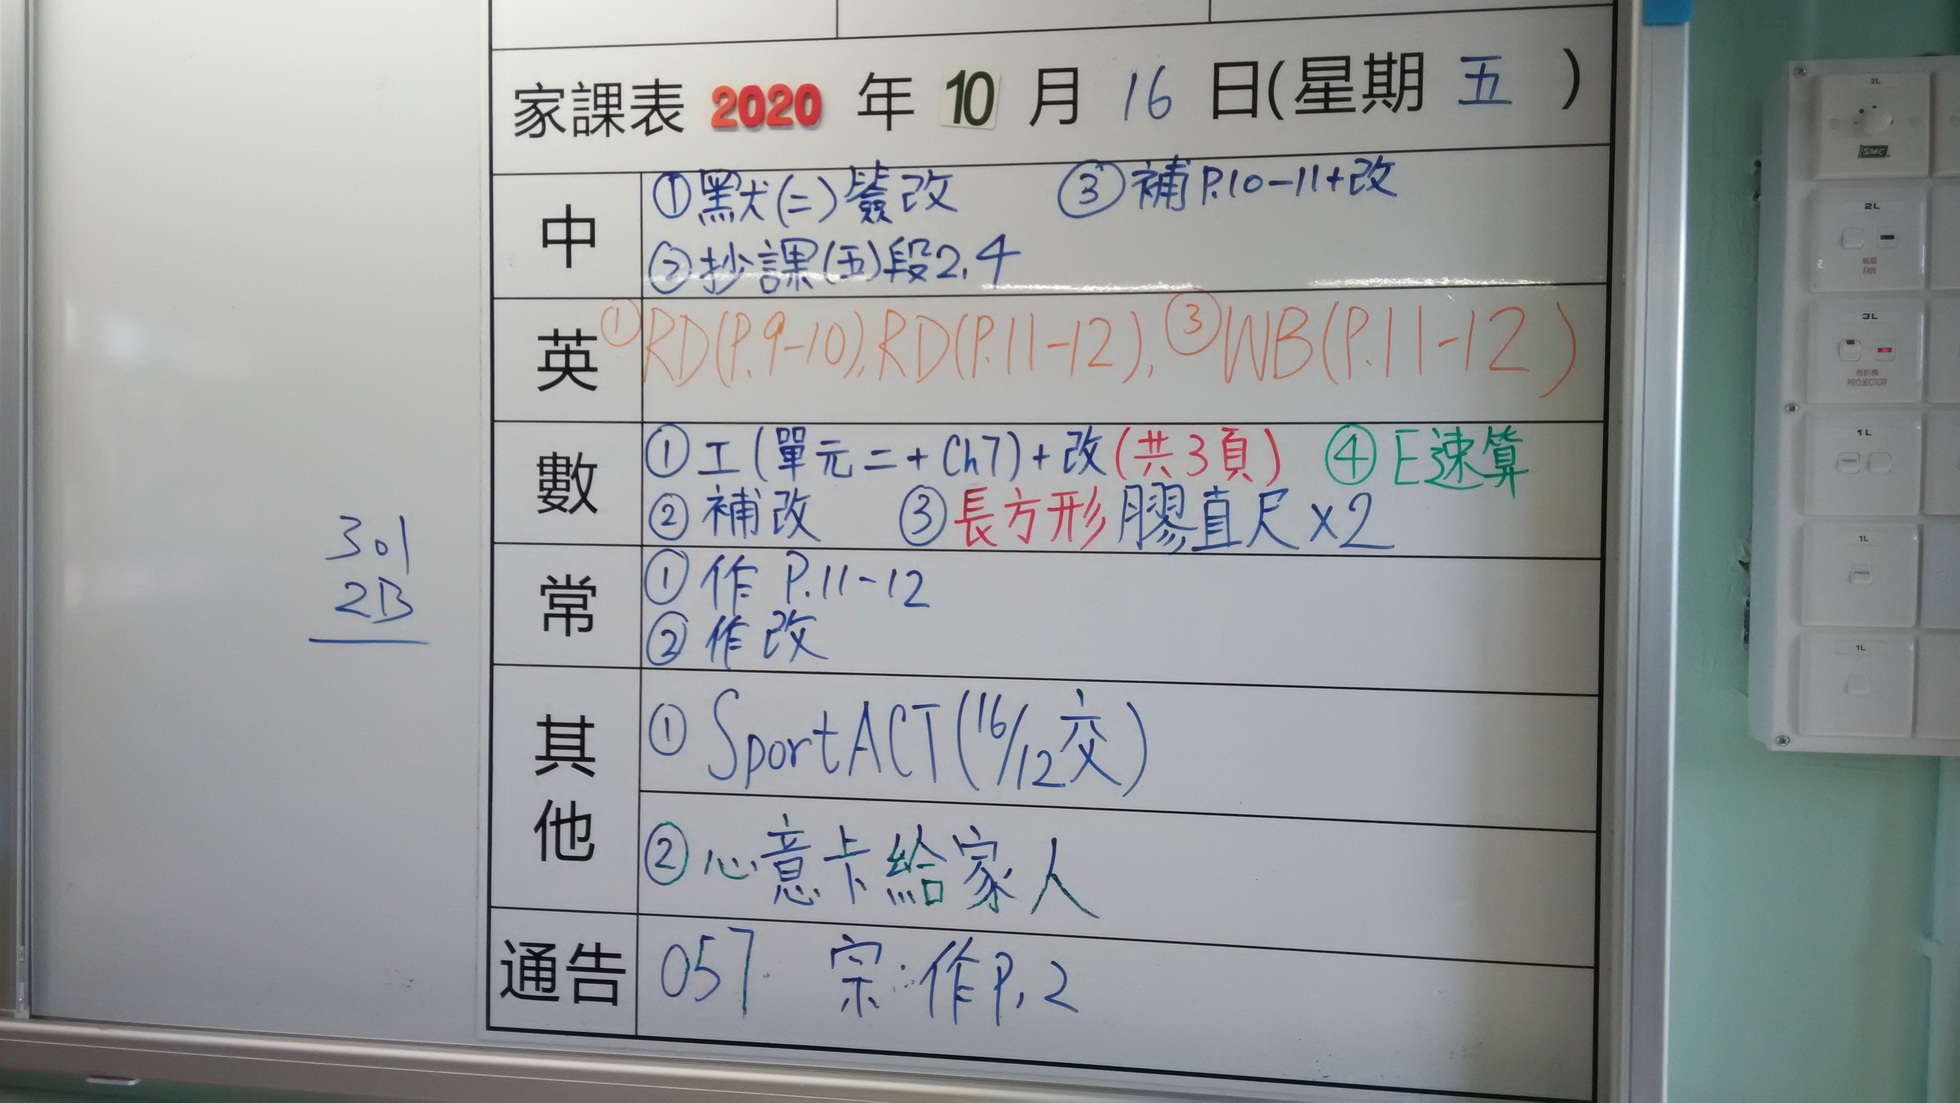 家課表 2020 年 10 月 16 日(星期 五 )
中
①默(二)簽改 ③補P.10-11+改
②抄課(五)段2,4
英
①RD(P.9-10), RD(P.11-12), ③WB(P.11-12)
數
①工(單元二+Ch7)+改(共3頁) ④E速算
②補改 ③長方形膠直尺x2
常
①作 P.11-12
②作改
其他
①SportACT(16/12交)
②心意卡給家人
通告
057 宗:作P.2
301
2B
2L
SMC
2L
風扇
FAN
3L
投影機
PROJECTOR
1L
1L
1L